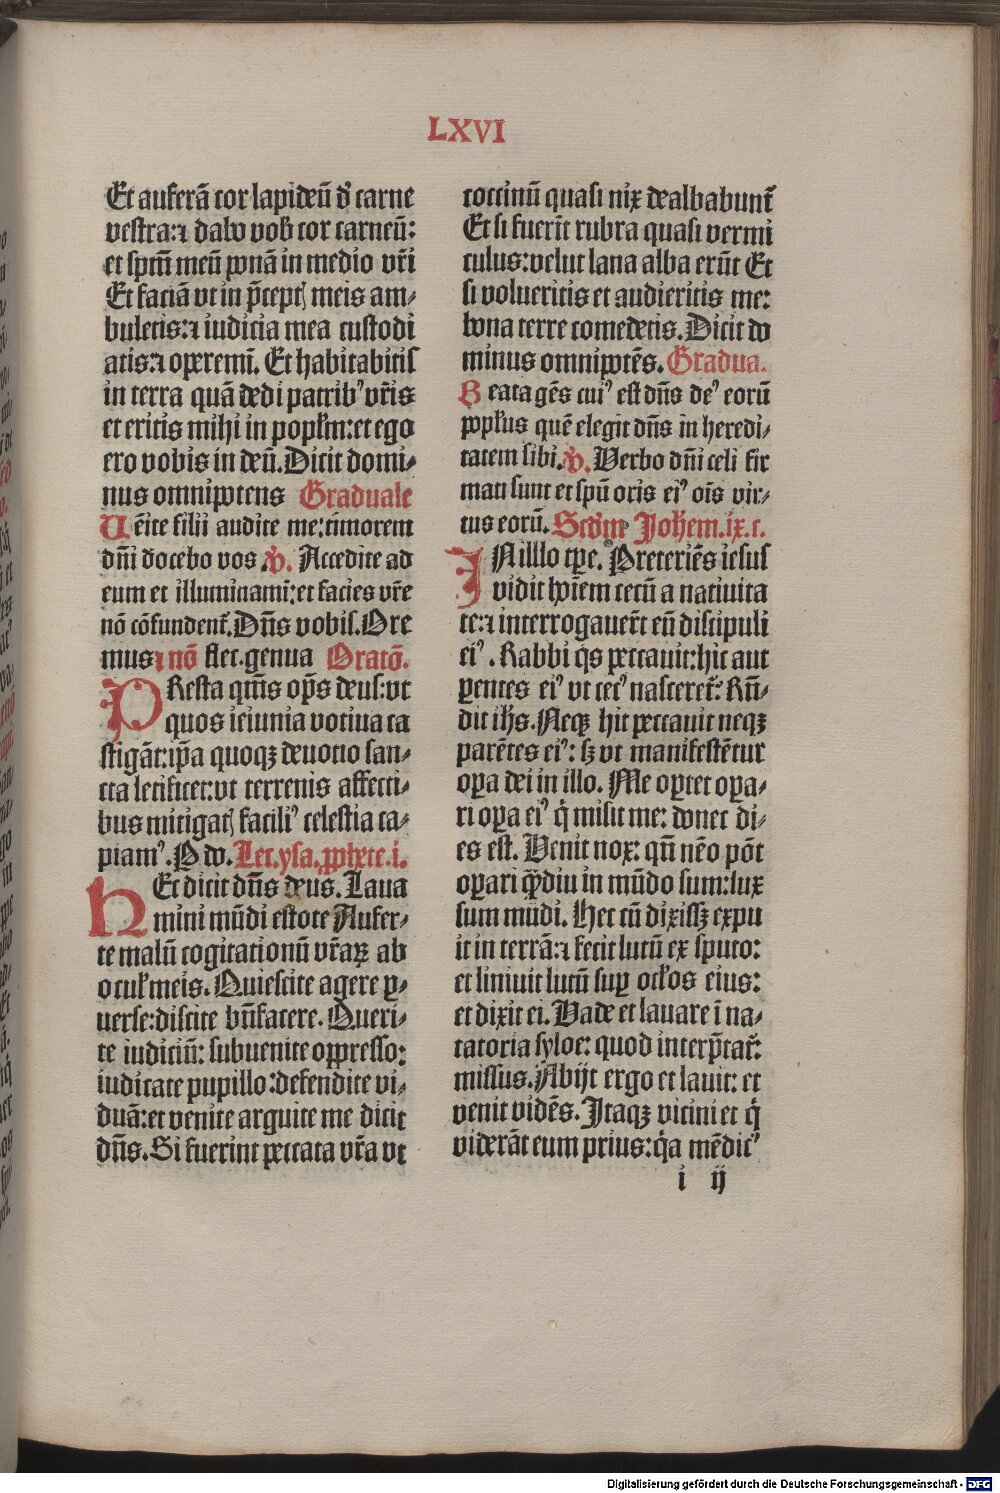 LXVI
Et auferā cor lapideū d̄ carne
vestra:⁊ dabo vob̄ cor carneū:
et spm̄ meū ponā in medio vr̄i
Et faciā vt in p̄ceptꝭ meis am⸗
buletis:⁊ iudicia mea custodi
atis:⁊ operemī. Et habitabitis
in terra quā dedi patribꝰ vr̄is
et eritis mihi in popłm:et ego
ero vobis in deū. Dicit domi⸗
nus omnipotens Graduale
Uēite filii audite me:timorem
dn̄i docebo vos .V̄. Accedite ad
eum et illuminami:et facies vr̄e
nō cōfundent̄. Dn̄s vobis. Ore
mus ⁊ nō flec. genua Oratō.
PResta qm̄s op̄s deus:vt
quos ieiunia votiua ca
stigāt:ip̄a quoqꝫ deuotio san⸗
cta letificet:vt terrenis affecti⸗
bus mitigatꝭ faciliꝰ celestia ca⸗
piamꝰ. P do. Lec. ysa. ꝓphete. i.
HEc dicit dn̄s deus. Laua
mini mūdi estote Aufer⸗
te malū cogitationū vr̄aꝝ ab
ocuł meis. Quiescite agere ꝑ⸗
uerse:discite bn̄facere. Queri⸗
te iudiciū: subuenite oppresso:
iudicate pupillo:defendite vi⸗
duā:et venite arguite me dicit
dn̄s. Si fuerint peccata vr̄a vt
coccinū quasi nix dealbabunt̄
Et si fuerīt rubra quasi vermi
culus:velut lana alba erūt Et
si volueritis et audieritis me:
bona terre comedetis. Dicit do
minus omnipotēs. Gradua.
Beata gēs cuiꝰ est dn̄s deꝰ eorū
popłus quē elegit dn̄s in heredi⸗
tatem sibi. V̄. Verbo dn̄i celi fir
mati sunt et spū oris eiꝰ oīs vir⸗
tus eorū. Scdm̄ Joħem. ix. c.
IN illo tꝑe. Preteriēs iesus
vidit hoīem cecū a natiuita
te:⁊ interrogauer̄t eū discipuli
eiꝰ. Rabbi q̄s peccauit:hic aut
ꝑentes eiꝰ vt cecꝰ nasceret̄: Rn̄⸗
dit ihs. Neqꝫ hic peccauit neqꝫ
parētes eiꝰ: sꝫ vt manifestētur
oꝑa dei in illo. Me oꝑtet oꝑa⸗
ri oꝑa eiꝰ q̄ misit me: donec di⸗
es est. Venit nox: qn̄ nēo pōt
oꝑari q̄diu in mūdo sum:lux
sum mūdi. Hec cū dixissꝫ expu
it in terrā:⁊ fecit lutū ex sputo:
et liniuit lutū suꝑ ocłos eius:
et dixit ei. Vade et lauare ī na⸗
tatoria syloe: quod interp̄tat̄:
missus. Abijt ergo et lauit: et
venit vidēs. Itaqꝫ vicini et q̄
viderāt eum prius:q̄a mēdicꝰ
i ij
Digitalisierung gefördert durch die Deutsche Forschungsgemeinschaft - DFG